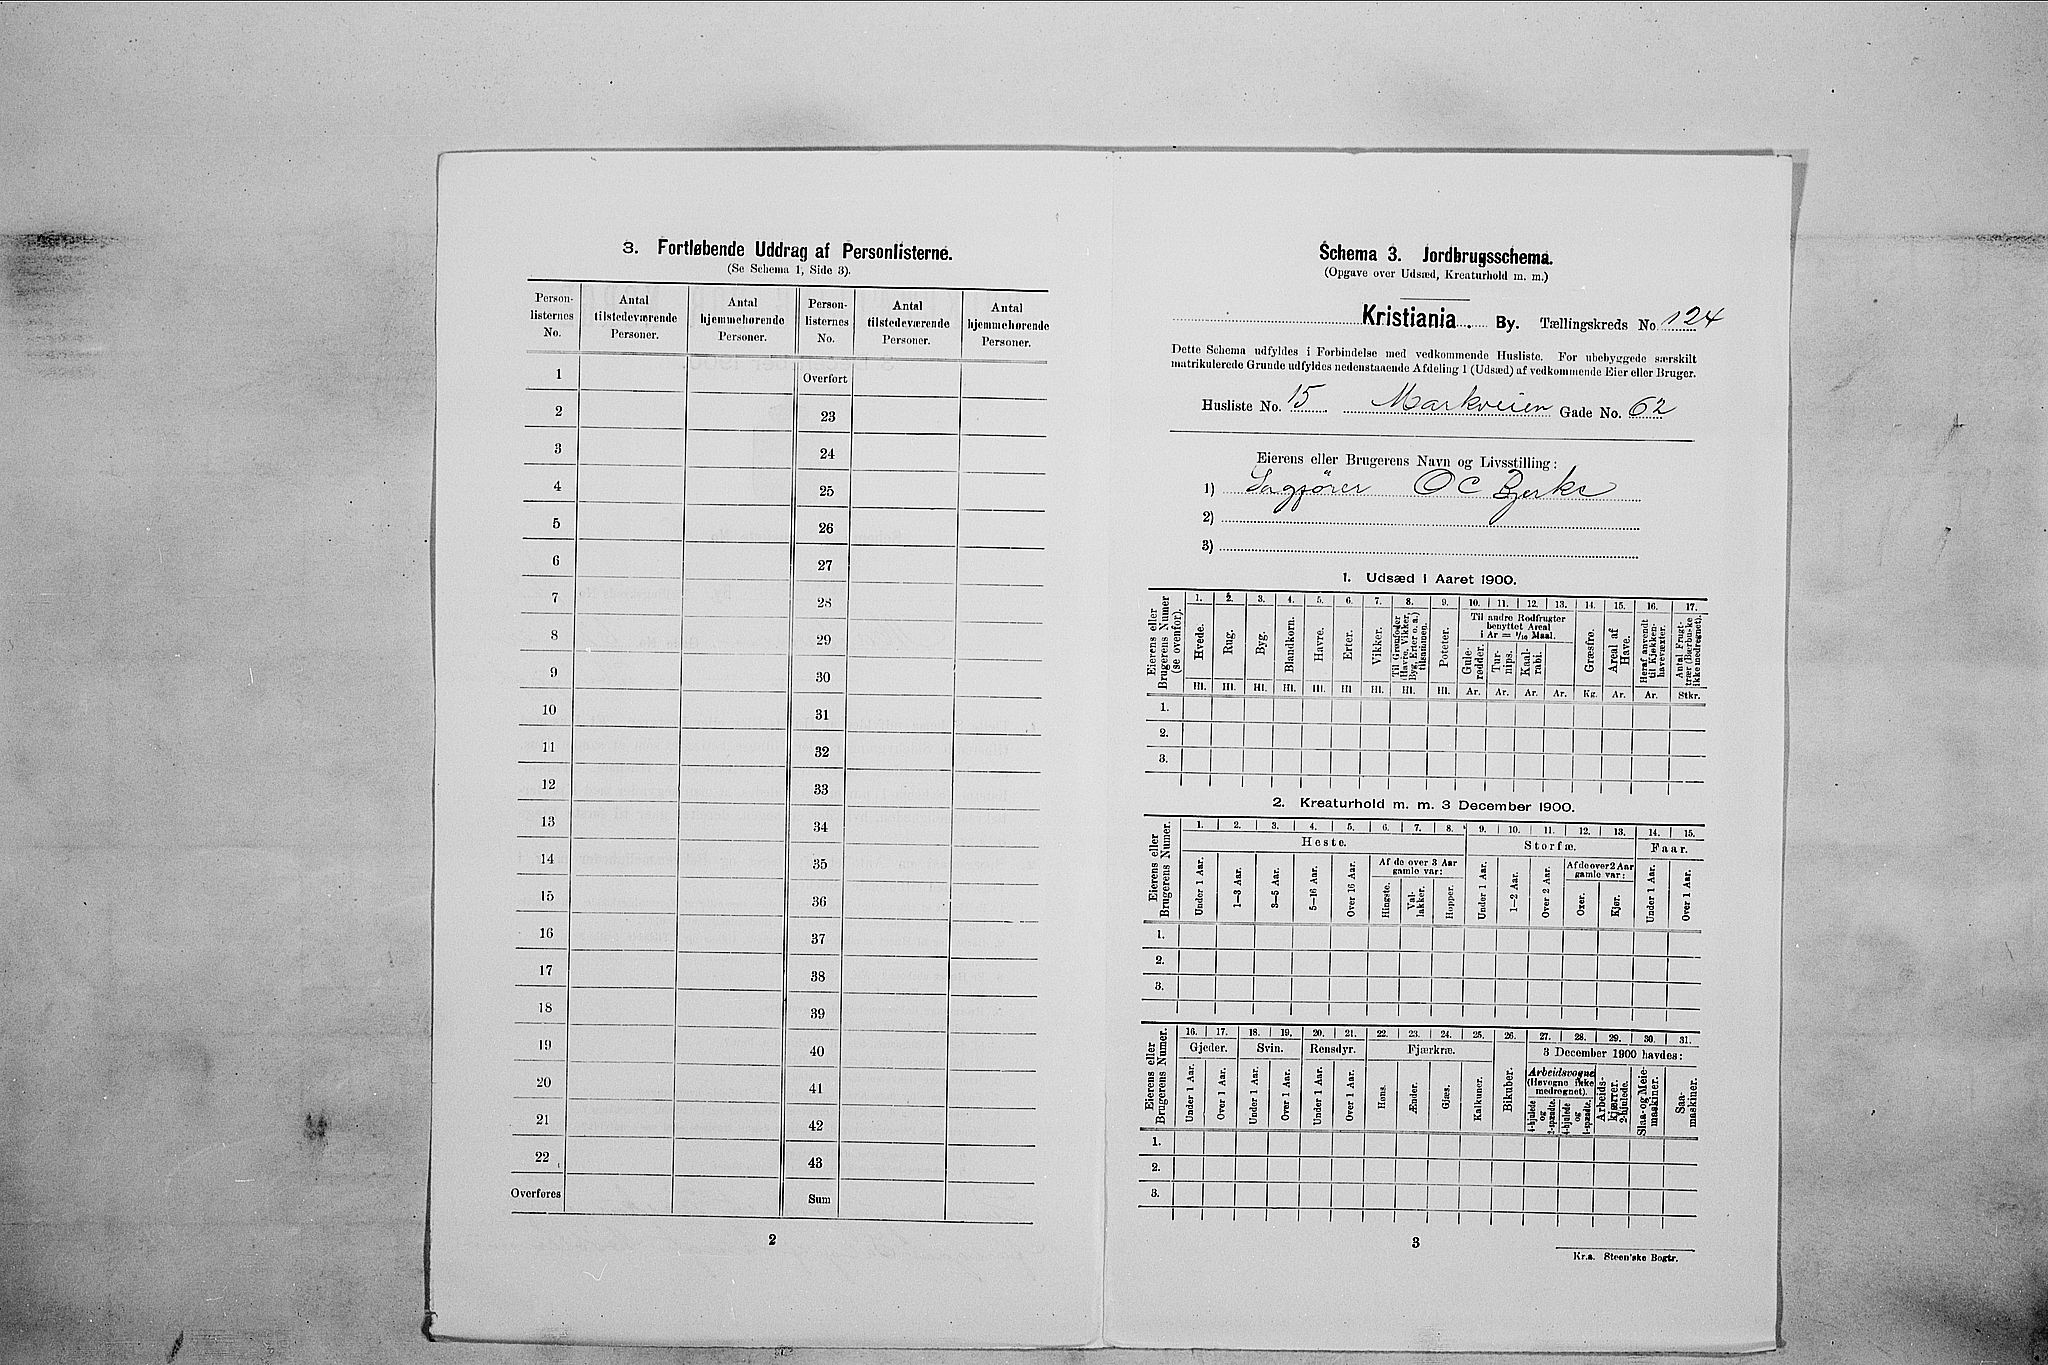 3. Fortløbende Uddrag af Personlisterne.
(Se Schema 1, Side 3).
Person-listernes No. Antal tilstedeværende Personer. Antal hjemmehørende Personer. Person-listernes No. Antal tilstedeværende Personer. Antal hjemmehørende Personer.
1 Overført
2 23
3 24
4 25
5 26
6 27
7 28
8 29
9 30
10 31
11 32
12 33
13 34
14 35
15 36
16 37
17 38
18 39
19 40
20 41
21 42
22 43
Overføres Sum
2
Schema 3. Jordbrugsschema.
(Opgave over Udsæd, Kreaturhold m. m.)
Kristiania. By. Tællingskreds No. 124
Dette Schema udfyldes i Forbindelse med vedkommende Husliste. For ubebyggede særskilt
matrikulerede Grunde udfyldes nedenstaaende Afdeling 1 (Udsæd) af vedkommende Eier eller Bruger.
Husliste No. 15. Markveien Gade No. 62
Eierens eller Brugerens Navn og Livsstilling:
1) Sagfører O C Bjerke
2)
3)
1. Udsæd i Aaret 1900.
Eierens eller Brugerens Numer (se ovenfor).
1. 2. 3. 4. 5. 6. 7. 8. 9. 10. 11. 12. 13. 14. 15. 16. 17.
Hvede. Rug. Byg. Blandkorn. Havre. Erter. Vikker. Til Grønfoder (Havre, Vikker, Byg, Erter o. a.) tilsammen. Poteter.
Til andre Rodfrugter benyttet Areal i Ar = 1/10 Maal.
Gule-rødder. Tur-nips. Kaal-rabi. Græsfrø. Areal af Have. Heraf anvendt til Kjøkken-havevæxter. Antal Frugt-trær (Bærbuske ikke medregnet).
Hl. Hl. Hl. Hl. Hl. Hl. Hl. Hl. Hl. Ar. Ar. Ar. Ar. Kg. Ar. Ar. Stkr.
1.
2.
3.
2. Kreaturhold m. m. 3 December 1900.
Eierens eller Brugerens Numer.
1. 2. 3. 4. 5. 6. 7. 8. 9. 10. 11. 12. 13. 14. 15.
Heste. Storfæ. Faar.
Under 1 Aar. 1—3 Aar. 3—5 Aar. 5—16 Aar. Over 16 Aar. Af de over 3 Aar gamle var: Hingste. Val-lakker. Hopper. Under 1 Aar. 1—2 Aar. Over 2 Aar. Af de over 2 Aar gamle var: Oxer. Kjør. Under 1 Aar. Over 1 Aar.
1.
2.
3.
Eierens eller Brugerens Numer.
16. 17. 18. 19. 20. 21. 22. 23. 24. 25. 26. 27. 28. 29. 30. 31.
Gjeder. Svin. Rensdyr. Fjærkræ. Bikuber. 3 December 1900 havdes:
Under 1 Aar. Over 1 Aar. Under 1 Aar. Over 1 Aar. Under 1 Aar. Over 1 Aar. Høns. Ænder. Gjæs. Kalkuner. Arbeidsvogne (Høvogne ikke medregnet). 4-hjulede og 2-spændte. 4-hjulede og 1-spændte. Arbeids-kjærrer, 2-hjulede. Slaa- og Meie-maskiner. Saa-maskiner.
1.
2.
3.
3
Kr.a. Steen'ske Bogtr.